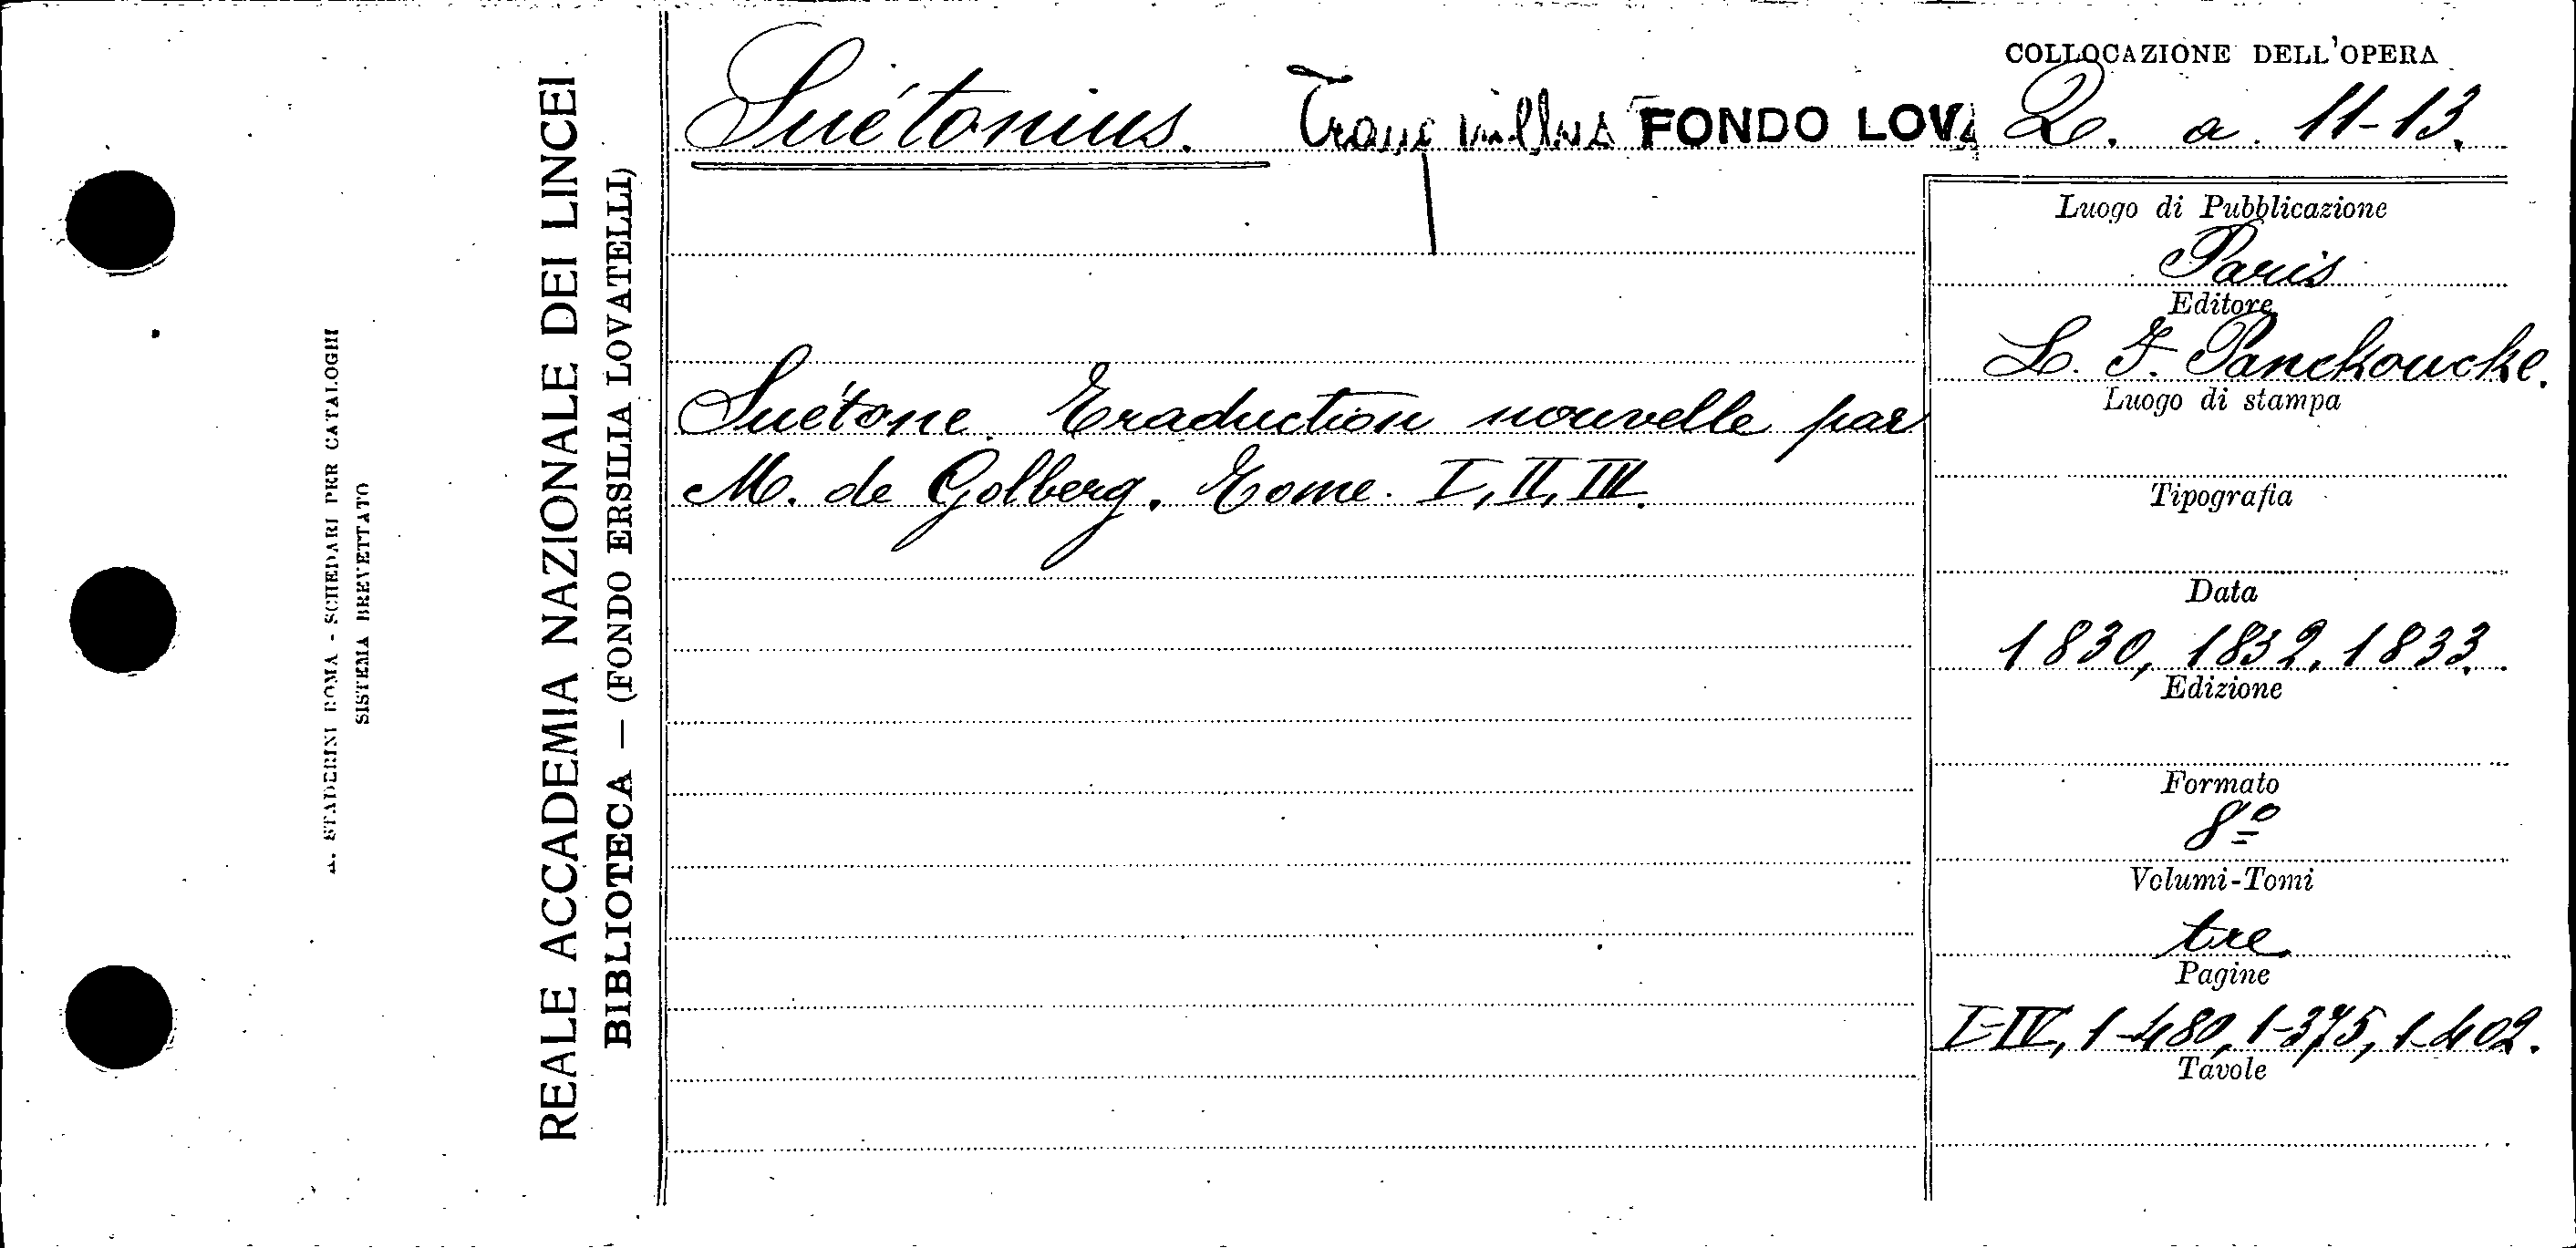 A. STADERINI ROMA - SCHEDARI PER CATALOGHI
SISTEMA BREVETTATO
REALE ACCADEMIA NAZIONALE DEI LINCEI
BIBLIOTECA — (FONDO ERSILIA LOVATELLI)
Suétonius. Tranquillus FONDO LOV.
COLLOCAZIONE DELL'OPERA
2. a. 11-13.
Suétone. Traduction nouvelle par
M. de Golberg. Tome. I, II, III.
Luogo di Pubblicazione
Paris
Editore
L. F. Panckoucke.
Luogo di stampa
Tipografia
Data
1830, 1832, 1833.
Edizione
Formato
8º
Volumi-Tomi
tre
Pagine
I-IV, 1-480, 1-375, 1-402.
Tavole